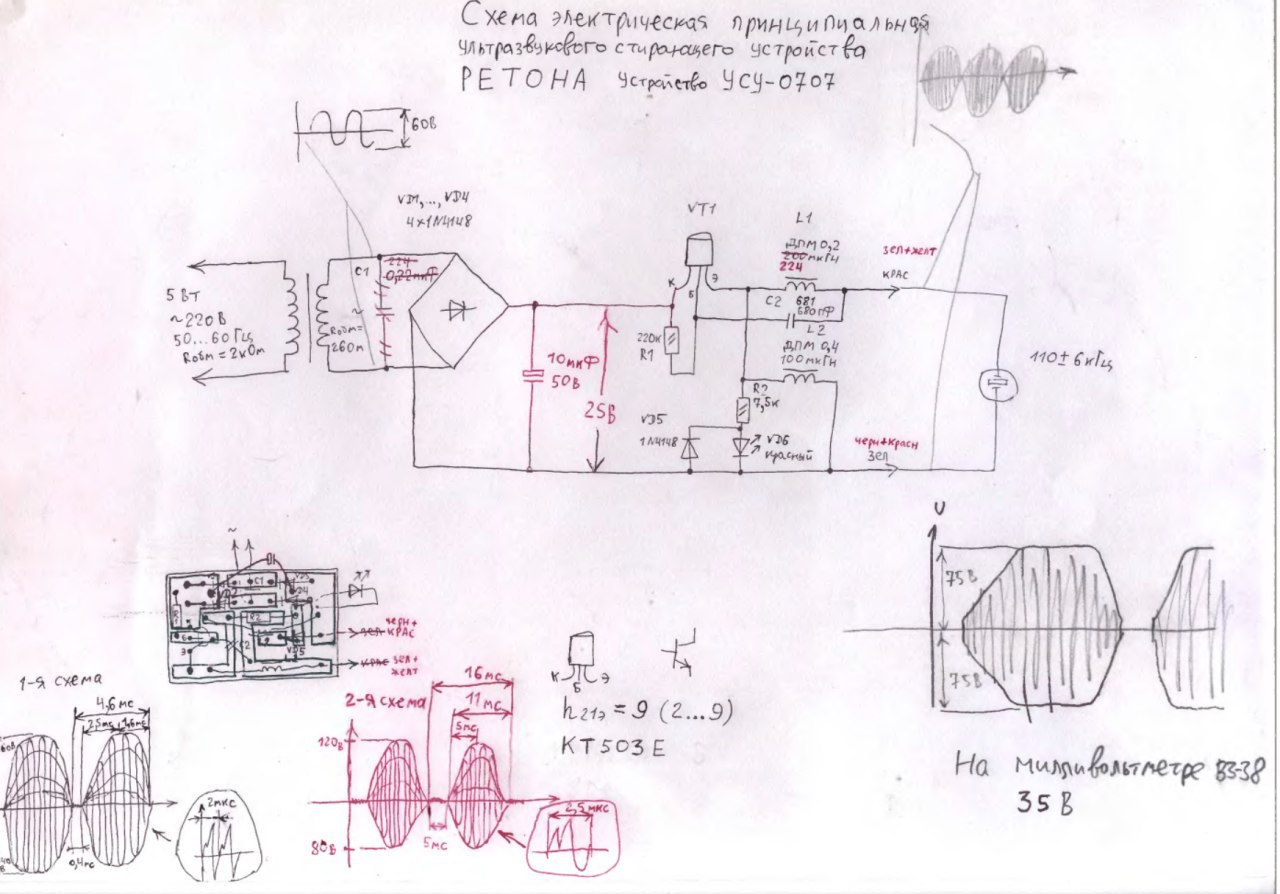 Схема электрическая принципиальная
ультразвукового стирающего устройства
РЕТОНА устройство УСУ-0707
60В
VD1,..., VD4
4x1N4148
VT1
L1
ДПМ 0,2
200мкГн
224
зел+желт
КРАС
C1
224
0,22мкФ
~
К
Б
Э
5 ВТ
~220В
50...60Гц
Rобм=2кОм
Rобм=
260м
10мкФ
50В
25В
220к
R1
C2
681
680пФ
L2
ДПМ 0,4
100мкГн
110±6кГц
R2
7,5к
VD5
1N4148
VD6
красный
черн+красн
ЗЕЛ
U
75В
75В
~
C1
VD5
VD4
R2
C2
L2
VD5
Э
черн+
ЗЕЛ КРАС
КРАС зел+
желт
1-я схема
4,6мс
2,5мс
1,6мс
60В
40
В
0,4мс
2мкс
2-я схема
16мс
11мс
5мс
120В
80В
5мс
2,5мкс
К
Б
Э
h21э = 9 (2...9)
КТ503Е
На милливольтметре В3-38
35В